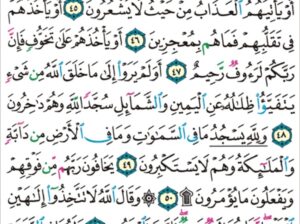 أَوْ يَأْتِيَهُمُ ٱلْعَذَابُ مِنْ حَيْثُ لَا يَشْعُرُونَ ٤٥ أَوْ يَأْخُذَهُمْ
فِي تَقَلُّبِهِمْ فَمَا هُم بِمُعْجِزِينَ ٤٦ أَوْ يَأْخُذَهُمْ عَلَىٰ تَخَوُّفٍ فَإِنَّ
رَبَّكُمْ لَرَءُوفٌ رَّحِيمٌ ٤٧ أَوَلَمْ يَرَوْا۟ إِلَىٰ مَا خَلَقَ ٱللَّهُ مِن شَىْءٍ
يَتَفَيَّؤُا۟ ظِلَٰلُهُۥ عَنِ ٱلْيَمِينِ وَٱلشَّمَآئِلِ سُجَّدًا لِّلَّهِ وَهُمْ دَٰخِرُونَ
٤٨ وَلِلَّهِ يَسْجُدُ مَا فِى ٱلسَّمَٰوَٰتِ وَمَا فِى ٱلْأَرْضِ مِن دَآبَّةٍ
وَٱلْمَلَٰٓئِكَةُ وَهُمْ لَا يَسْتَكْبِرُونَ ٤٩ يَخَافُونَ رَبَّهُم مِّن فَوْقِهِمْ
وَيَفْعَلُونَ مَا يُؤْمَرُونَ ۩ ٥٠ ۞ وَقَالَ ٱللَّهُ لَا تَتَّخِذُوٓا۟ إِلَٰهَيْنِ